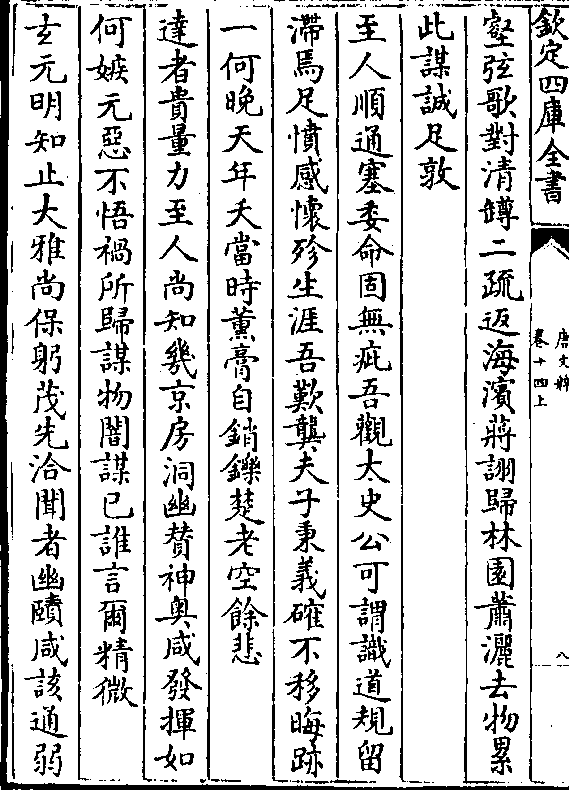 欽定四庫全書
唐文粹
卷十四上
八
壑弦歌對清罇二疏返海濱蔣詡歸林園蕭灑去物累
此謀誠足敦
至人順通塞委命固無疵吾觀太史公可謂識道規留
滯焉足憤感懷殄生涯吾歎龔夫子秉義確不移晦跡
一何晚天年夭當時薰膏自銷鑠楚老空餘悲
達者貴量力至人尚知幾京房洞幽賛神奥咸發揮如
何嫉元惡不悟禍所歸謀物闇謀已誰言爾精微
玄元明知止大雅尚保躬茂先洽聞者幽賾咸該通弱